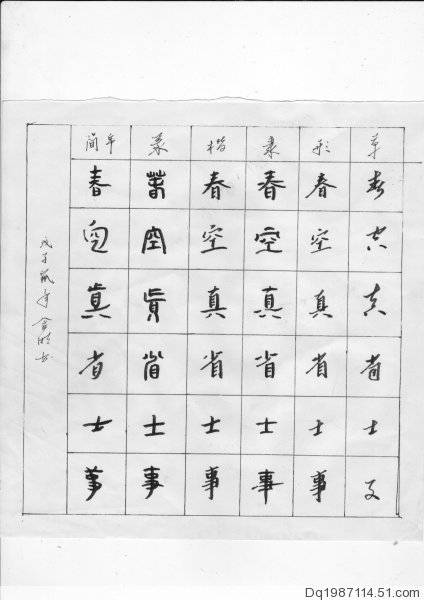 简年 篆 楷 隶 形 草
春 春 春 春 春 春
空 空 空 空 空 空
真 真 真 真 真 真
省 省 省 省 省 省
士 士 士 士 士 士
事 事 事 事 事 事
戊子鼠年
Dq1987114.51.com